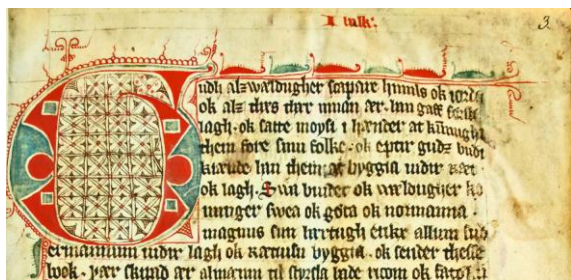 I balk:
3
Gudh alzwældugher scapare himils ok iordz
ok alz thes ther innan ær. han gaff første
lagh. ok satte moysi i hænder at kungha
them fore sinu folke. ok eptir gudz budi
han them at byggia undir ræt
ok lagh. Swa biuder ok wældugher ko
nunger swea ok göta ok normanna.
magnus sun hærtugh eriks allum sub
ermannum undir lagh ok rætuisu byggia. ok sender thesse
book. þær skynd ær almænni til